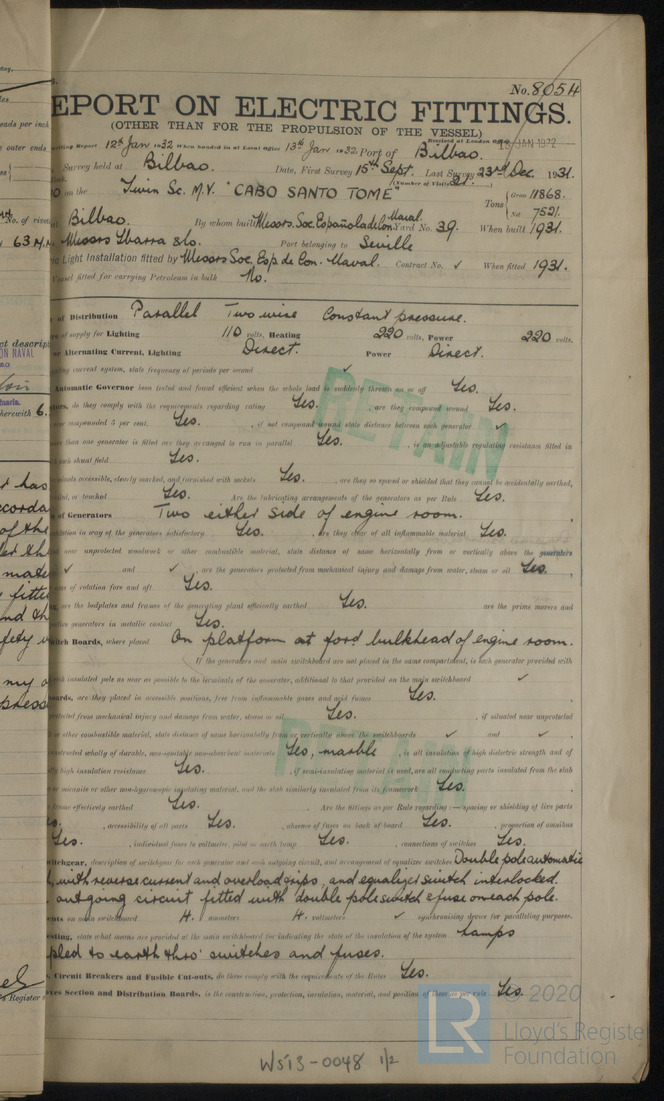 No. 8054
EPORT ON ELECTRIC FITTINGS.
(OTHER THAN FOR THE PROPULSION OF THE VESSEL)
Writing Report 12th Jan 1932 When handed in at Local Office 13th Jan 1932. Port of Bilbao. Received at London Office JAN 1932
Survey held at Bilbao. Date, First Survey 15th Sept. Last Survey 23rd Dec 1931.
(Number of Visits 21.)
on the Twin Sc. M.V. "CABO SANTO TOME" Tons { Gross 11868. Net 7521.
Bilbao. By whom built Messrs. Soc. Española de Con. Naval. Yard No. 39. When built 1931.
Messrs Ybarra & Co. Port belonging to Seville
Light Installation fitted by Messrs Soc. Esp. de Con. Naval. Contract No. ✓ When fitted 1931.
Vessel fitted for carrying Petroleum in bulk No.
of Distribution Parallel Two wire Constant pressure.
of supply for Lighting 110 volts, Heating 220 volts, Power 220 volts.
or Alternating Current, Lighting Direct. Power Direct.
current system, state frequency of periods per second ✓
Automatic Governor been tested and found efficient when the whole load is suddenly thrown on or off Yes.
do they comply with the requirements regarding rating Yes. , are they compound wound Yes.
compounded 5 per cent. Yes. , if not compound wound state distance between each generator ✓
more than one generator is fitted are they arranged to run in parallel Yes. , is an adjustable regulating resistance fitted in
each shunt field Yes.
accessible, clearly marked, and furnished with sockets Yes. , are they so spaced or shielded that they cannot be accidentally earthed,
or touched Yes. Are the lubricating arrangements of the generators as per Rule Yes.
of Generators Two either side of engine room.
in way of the generators satisfactory Yes. , are they clear of all inflammable material Yes.
near unprotected woodwork or other combustible material, state distance of same horizontally from or vertically above the generators
✓ and ✓ , are the generators protected from mechanical injury and damage from water, steam or oil Yes.
of rotation fore and aft Yes.
are the bedplates and frames of the generating plant efficiently earthed Yes. are the prime movers and
generators in metallic contact Yes.
Switch Boards, where placed On platform at ford bulkhead of engine room.
If the generators and main switchboard are not placed in the same compartment, is each generator provided with
each insulated pole as near as possible to the terminals of the generator, additional to that provided on the main switchboard ✓
are they placed in accessible positions, free from inflammable gases and acid fumes Yes.
protected from mechanical injury and damage from water, steam or oil Yes. , if situated near unprotected
or other combustible material, state distance of same horizontally from or vertically above the switchboards ✓ and ✓
constructed wholly of durable, non-ignitable non-absorbent materials Yes, marble , is all insulation of high dielectric strength and of
high insulation resistance Yes. , if semi-insulating material is used, are all conducting parts insulated from the slab
or micanite or other non-hygroscopic insulating material, and the slab similarly insulated from its framework Yes.
frame effectively earthed Yes. Are the fittings as per Rule regarding:— spacing or shielding of live parts
, accessibility of all parts Yes. , absence of fuses on back of board Yes. , proportion of omnibus
Yes. , individual fuses to voltmeter, pilot or earth lamp Yes. , connections of switches Yes.
Switchgear, description of switchgear for each generator and each outgoing circuit, and arrangement of equalizer switches Double pole automatic
with reverse current and overload trips, and equalizer switch interlocked.
outgoing circuit fitted with double pole switch & fuse on each pole.
on main switchboard 4. ammeters 4. voltmeters ✓ synchronising device for paralleling purposes.
state what means are provided at the main switchboard for indicating the state of the insulation of the system Lamps
to earth thro' switches and fuses.
Circuit Breakers and Fusible Cut-outs, do these comply with the requirements of the Rules Yes.
Section and Distribution Boards, is the construction, protection, insulation, material, and position of these as per rule Yes.
RETAIN
RETAIN
W513-0048 1/2
LR
© 2020
Lloyd's Register
Foundation